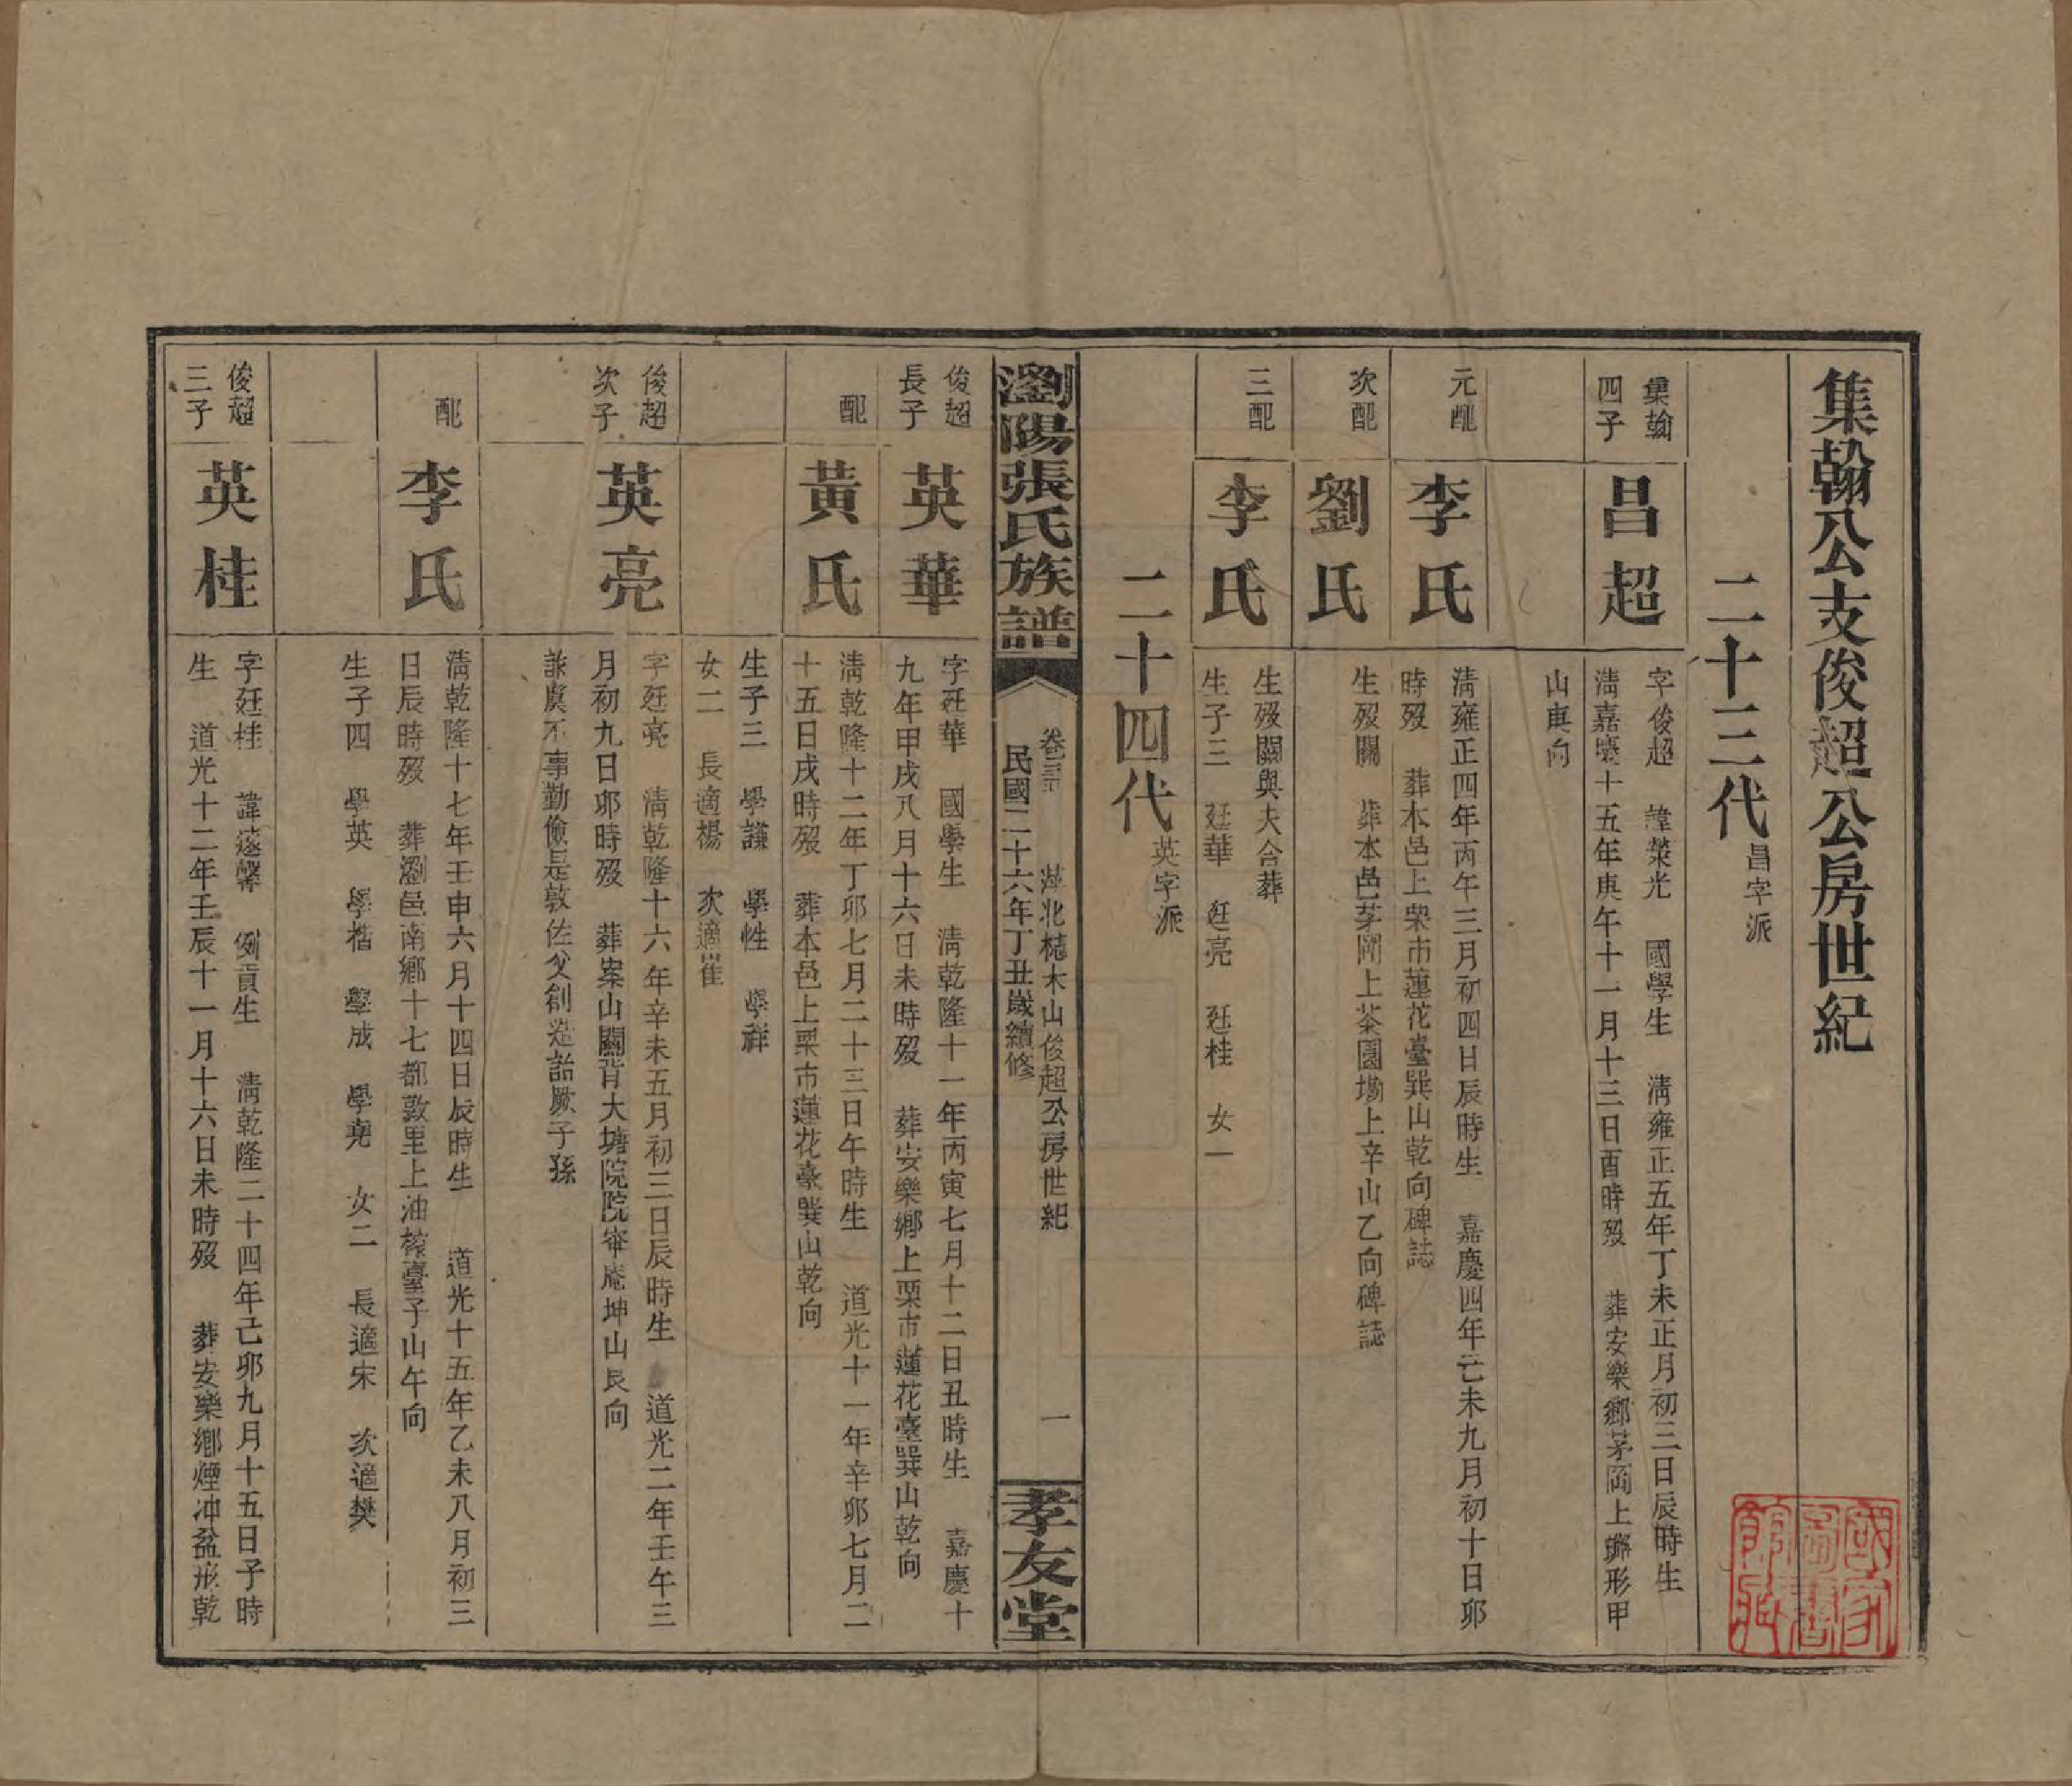 集翰公支俊超公房世紀
二十三代 昌字派
集翰
四子
昌超
字俊超 諱榮光 國學生 淸雍正五年丁未正月初三日辰時生
淸嘉慶十五年庚午十一月十三日酉時歿 葬安樂鄉茅岡上 形甲
山庚向
元配
李氏
淸雍正四年丙午三月初四日辰時生 嘉慶四年己未九月初十日卯
時歿 葬本邑上栗市蓮花臺巽山乾向碑誌
次配
劉氏
生歿闕 葬本邑茅岡上茶園塲上辛山乙向碑誌
三配
李氏
生歿闕與夫合葬
生子三 廷華 廷亮 廷桂 女一
二十四代 英字派
瀏陽張氏族譜
卷三 萍北 木山俊超公房世紀 一
民國二十六年丁丑歲續修
孝友堂
俊超
長子
英華
字廷華 國學生 淸乾隆十一年丙寅七月十二日丑時生 嘉慶十
九年甲戌八月十六日未時歿 葬安樂鄉上栗市蓮花臺巽山乾向
配
黃氏
淸乾隆十二年丁卯七月二十三日午時生 道光十一年辛卯七月二
十五日戌時歿 葬本邑上栗市蓮花臺巽山乾向
生子三 學謙 學性 學祥
女二 長適楊 次適崔
俊超
次子
英亮
字廷亮 淸乾隆十六年辛未五月初三日辰時生 道光二年壬午三
月初九日卯時歿 葬案山關背大塘院院 庵坤山艮向
詠虞不事勤儉是敦佐父創造詒厥子孫
配
李氏
淸乾隆十七年壬申六月十四日辰時生 道光十五年乙未八月初三
日辰時歿 葬瀏邑南鄉十七都敦里上油榨臺子山午向
生子四 學英 學楷 學成 學堯 女二 長適宋 次適樊
俊超
三子
英桂
字廷桂 諱遂馨 例貢生 淸乾隆二十四年己卯九月十五日子時
生 道光十二年壬辰十一月十六日未時歿 葬安樂鄉煙冲盆形乾